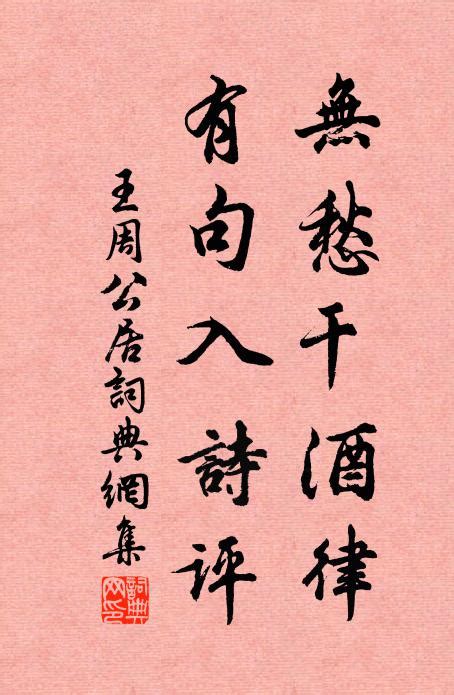 無愁干酒律
有句入詩評
王周公居詞典網集
詞典网印